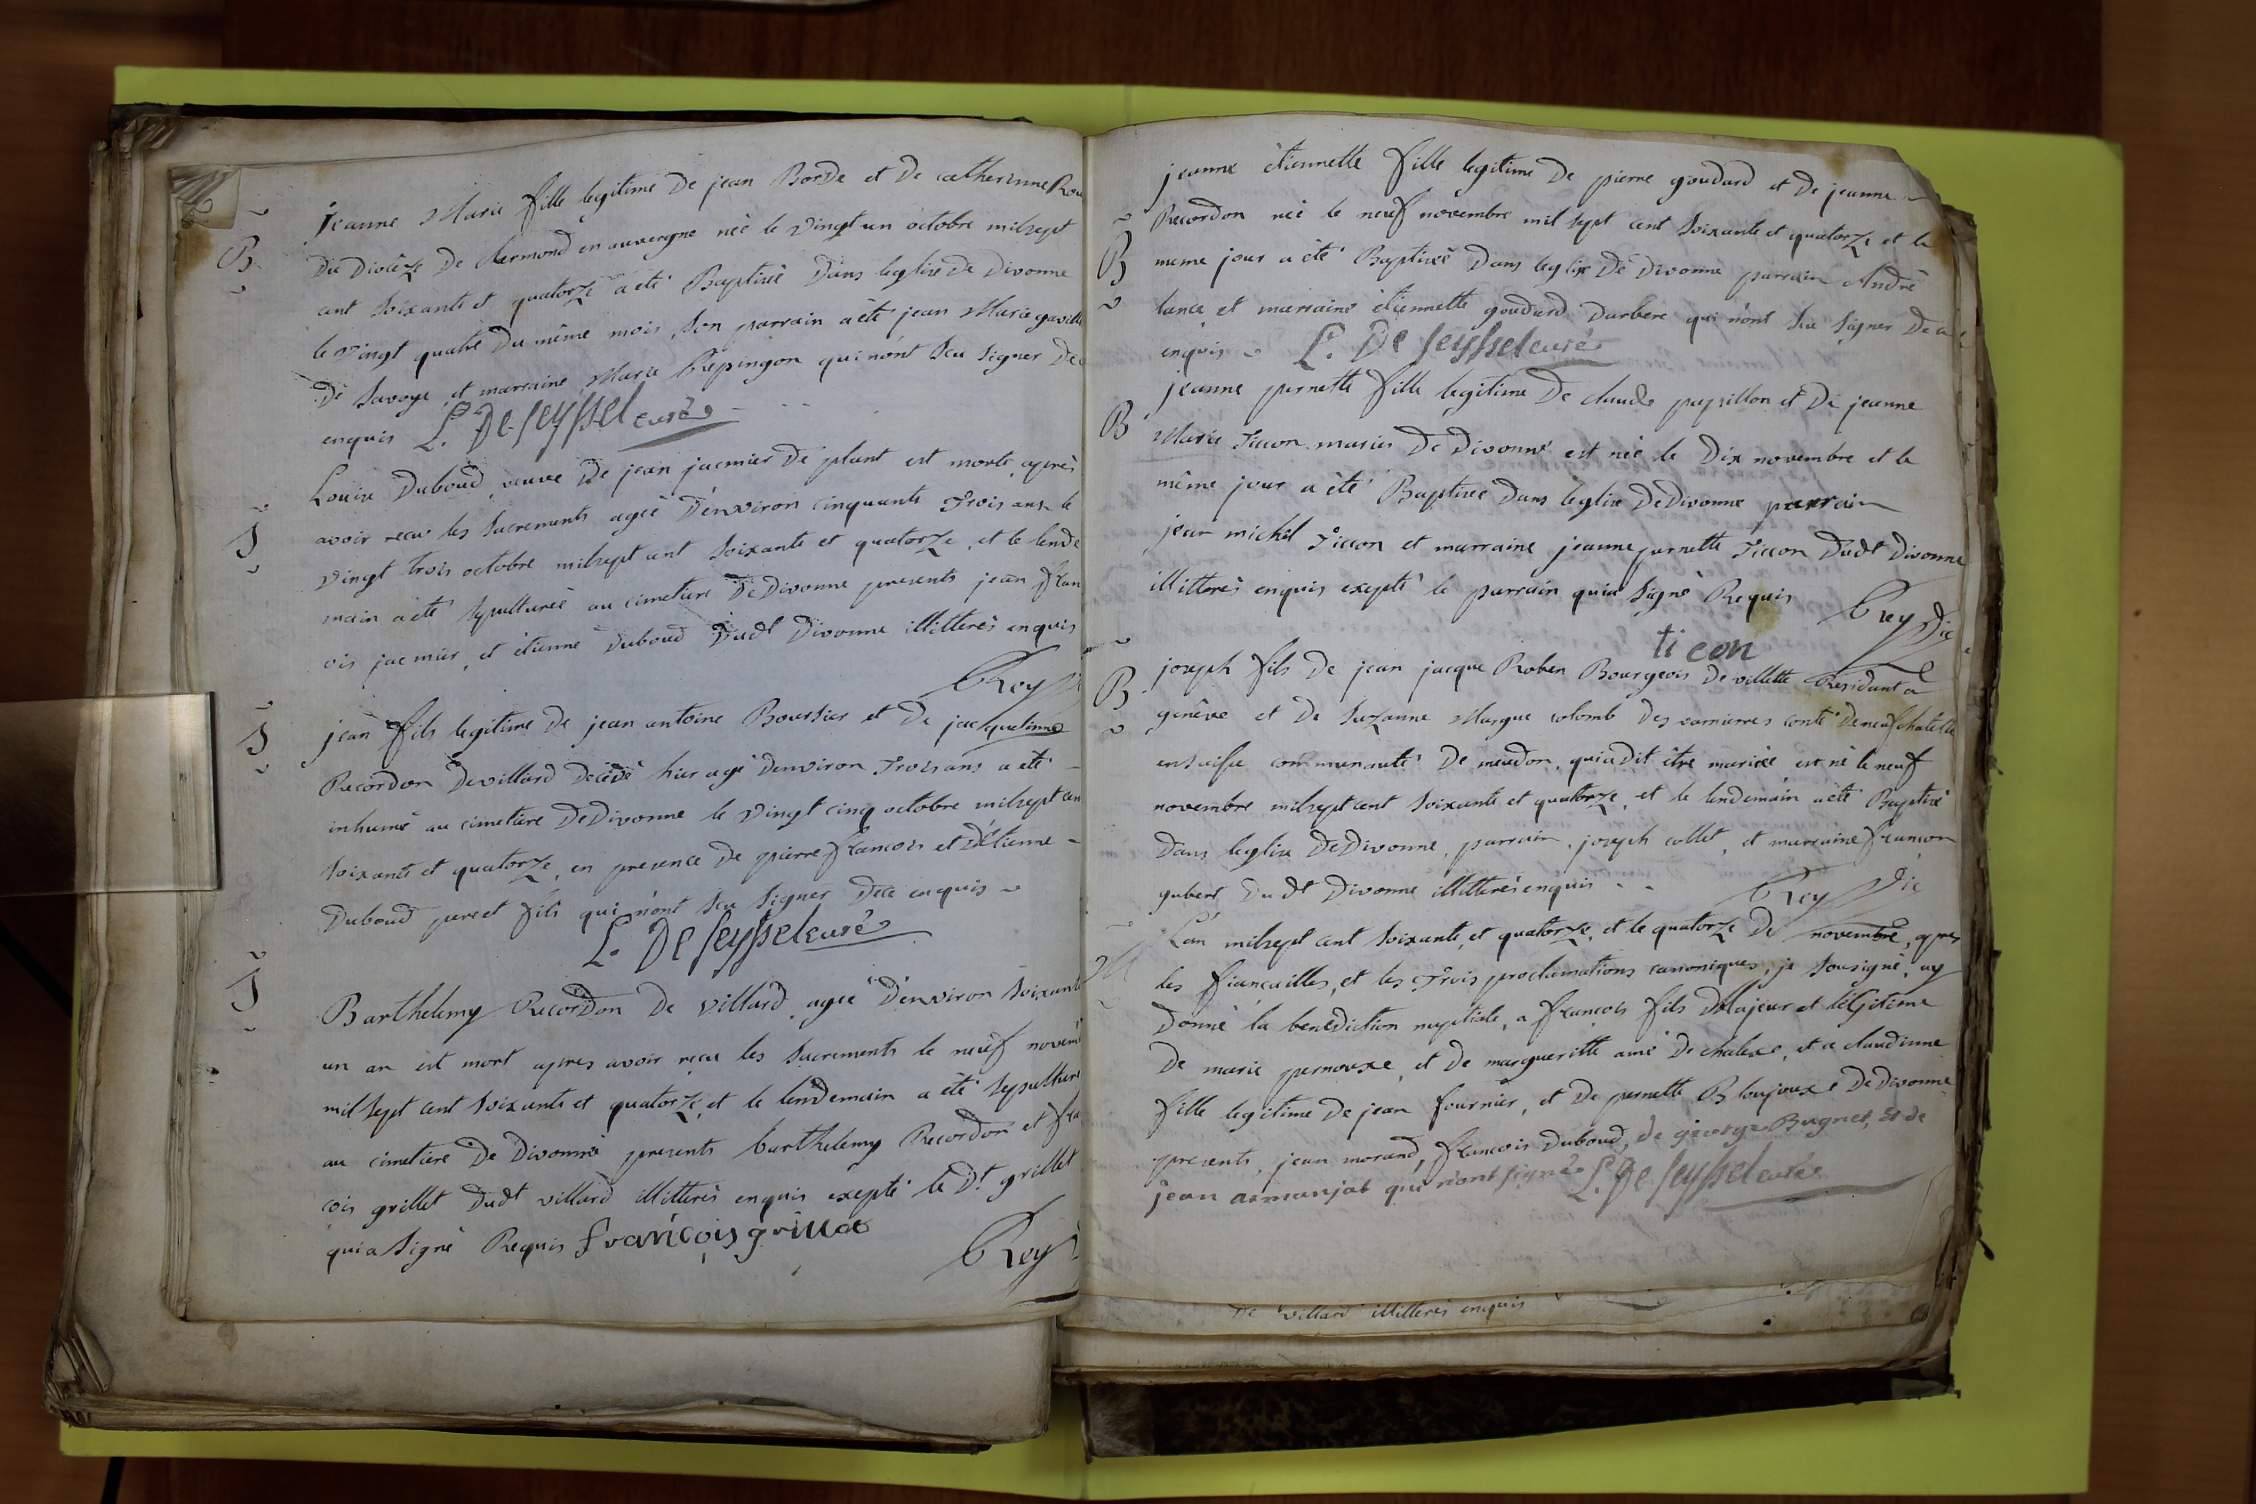 B
jeanne Marie fille legitime De jean Borde et De catherinne Rou
Du Diocèze De clermond en auvergne née le vingt un octobre milsept
cent soixante et quatorze a eté Baptisée Dans leglise De Divonne
le vingt quatre Du même mois, son parrain a été jean Marie
De Savoye, et marraine Marie Pepingon qui n'ont sçu signer De ce
enquis L. De seyssel curé
S
Louise Duboud, veuve De jean jacmier De plant est morte, aprés
avoir recu les sacrements agée D'environ cinquante Trois ans le
vingt trois octobre milsept cent soixante et quatorze, et le lende
main a eté sepulturée au cimetiere De Divonne presents jean fran
ois jacmier, et étienne Duboud Dudt Divonne illitterés enquis
Rey
S
jean fils legitime De jean antoine Boursier et De jacquelinne
Recordon De villard Decédé hier agé Denviron Trois ans a eté
inhumé au cimetiere De Divonne le vingt cinq octobre milsept cen
soixante et quatorze, en presence De pierre francois et D'étienne
Duboud pere et fils qui n'ont sçu signer Dece enquis
L. De seyssel curé
S
Barthelemy Recordon De villard, ageé D'environ soixante
un an est mort apres avoir reçu les sacrements le neuf novem
mil sept cent soixante et quatorze, et le lendemain a été sepulturé
au cimetiere De Divonne presents barthelemy Recordon et fra
cois grillet Dudt villard illitterés enquis exepté le Dt. grillet
qui a signé Requis françois grillet
Rey
B
jeanne étiennette fille legitime De pierre goudard et De jeanne
Recordon née le neuf novembre mil sept cent soixante et quatorze et le
meme jour a été Baptisée Dans leglise De Divonne parrain André
lance et marraine étiennette goudard Darbere qui n'ont sçu signer De ce
enquis L. De seyssel curé
B
jeanne pernette fille legitime De claude papillon et De jeanne
Marie Ticon mariés De Divonne est née le Dix novembre et le
même jour a été Baptisée Dans leglise De Divonne parrain
jean michel Ticon et marraine jeanne pernette Ticon Dudt Divonne
illitterés enquis exepté le parrain qui a signé Requis Rey Vic
ticon
B
joseph fils De jean jacque Roben Bourgeois De villette Residant a
genêve et De suzanne Margue colomb Des comté De neufchatelle
en suisse communauté De meudon, qui a dit être mariée est né le neuf
novembre milsept cent soixante et quatorze, et le lendemain a eté Baptisé
Dans leglise De Divonne, parrain, joseph collet, et marraine franson
gubert Du dt Divonne illitterés enquis Rey Vic
M
L'an milsept cent soixante, et quatorze, et le quatorze De novembre, apres
les fiancailles, et les Trois proclamations canoniques, je sousigné, ay
Donné la benediction nuptiale, a francois fils Majeur et legitime
De marie pernouxe, et De margueritte amé De chalexe, et a claudinne
fille legitime De jean fournier, et De pernette Bloujouxe De Divonne
presents, jean morand, francois Duboud, de george Bugnet, et de
jean armanjat qui n'ont signé L. De seyssel curé
De villard illitterés enquis